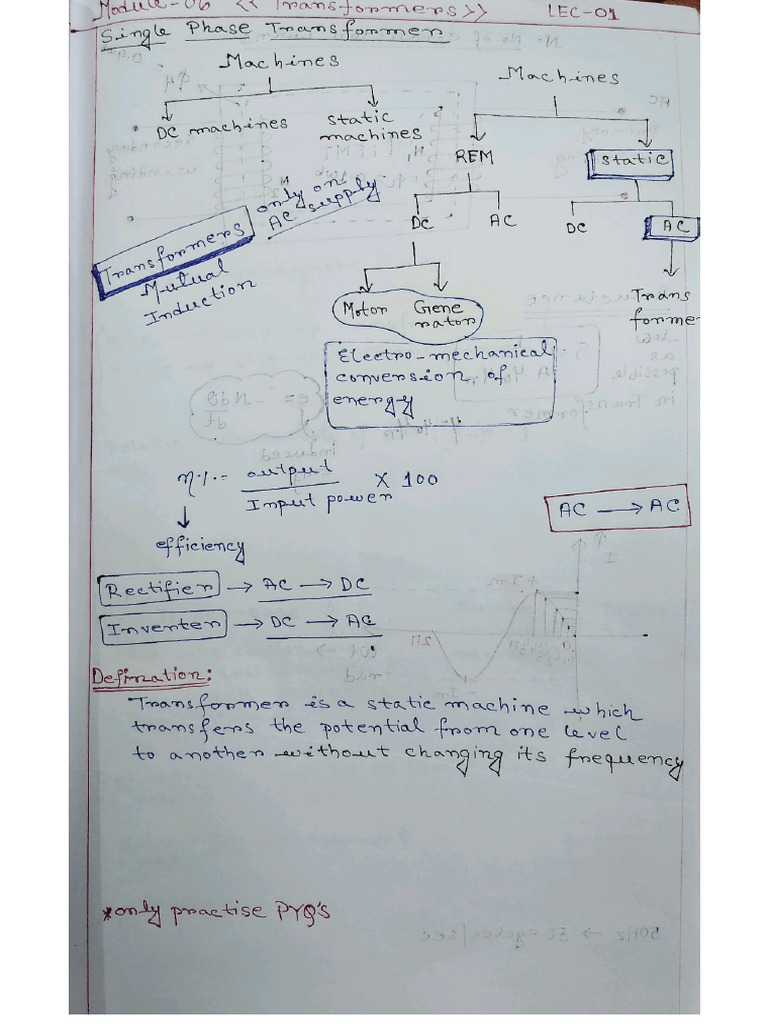 Module-06 << Transformers >> LEC-01
Single Phase Transformer
Machines
DC machines
static machines
Machines
REM
static
DC
AC
DC
AC
Motor
Gene
rator
Trans
forme
Transformers only on
AC supply
Mutual
Induction
Electro-mechanical
conversion of
energy
η%= output / Input power X 100
efficiency
AC → AC
Rectifier → AC → DC
Inverter → DC → AC
Defination:
Transformer is a static machine which
transfers the potential from one level
to another without changing its frequency
*only practise PYQ's